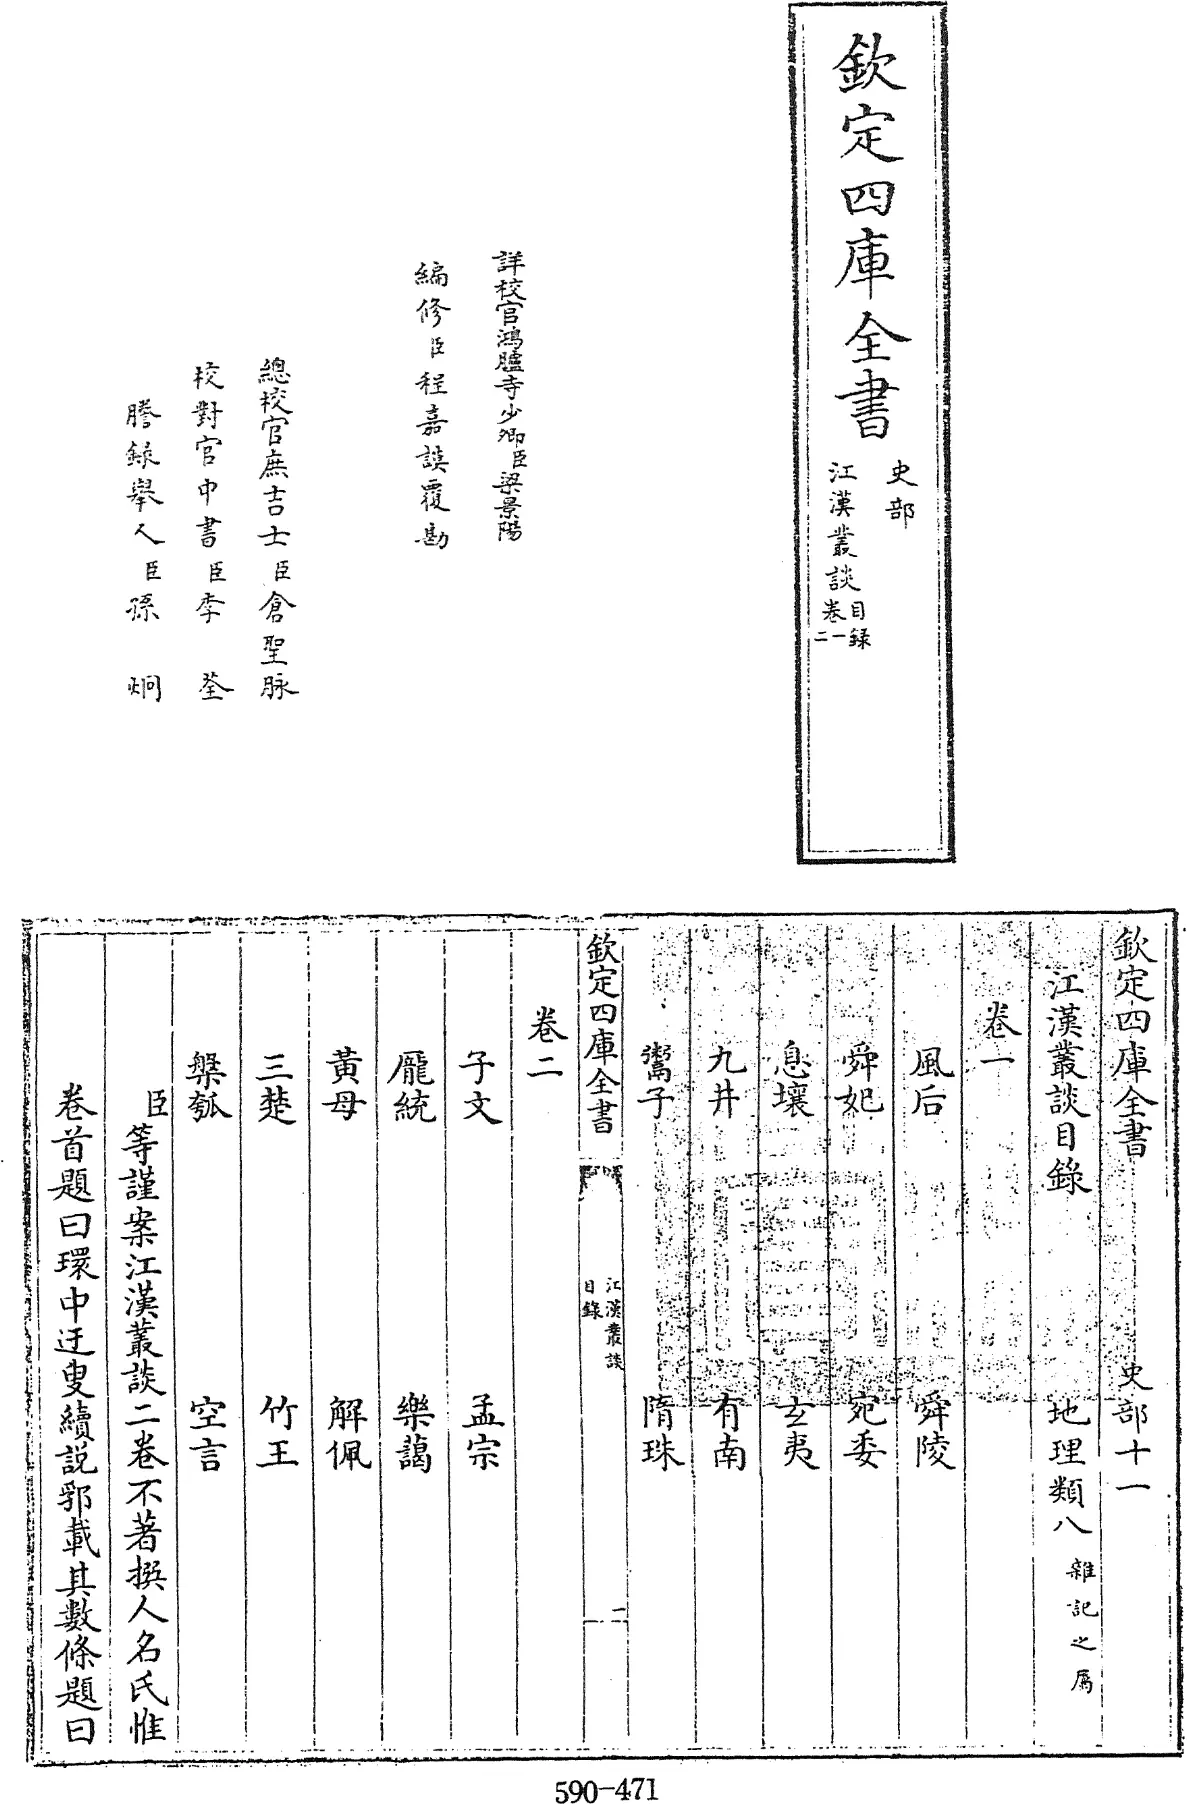 欽定四庫全書
史部
江漢叢談
目録
卷一
二
詳校官鴻臚寺少卿臣梁景陽
編修臣程嘉謨覆勘
總校官庶吉士臣倉聖脉
校對官中書臣李荃
謄録舉人臣孫炯
欽定四庫全書 史部十一
江漢叢談目錄 地理類八 雜記之屬
卷一
風后 舜陵
舜妃 宛委
息壤 玄夷
九井 有南
鬻子 隋珠
欽定四庫全書 江漢叢談 目錄 一
卷二
子文 孟宗
龎統 樂藹
黃母 解佩
三楚 竹王
槃瓠 空言
臣等謹案江漢叢談二卷不著撰人名氏惟
卷首題曰環中迂叟續説郛載其數條題曰
590-471